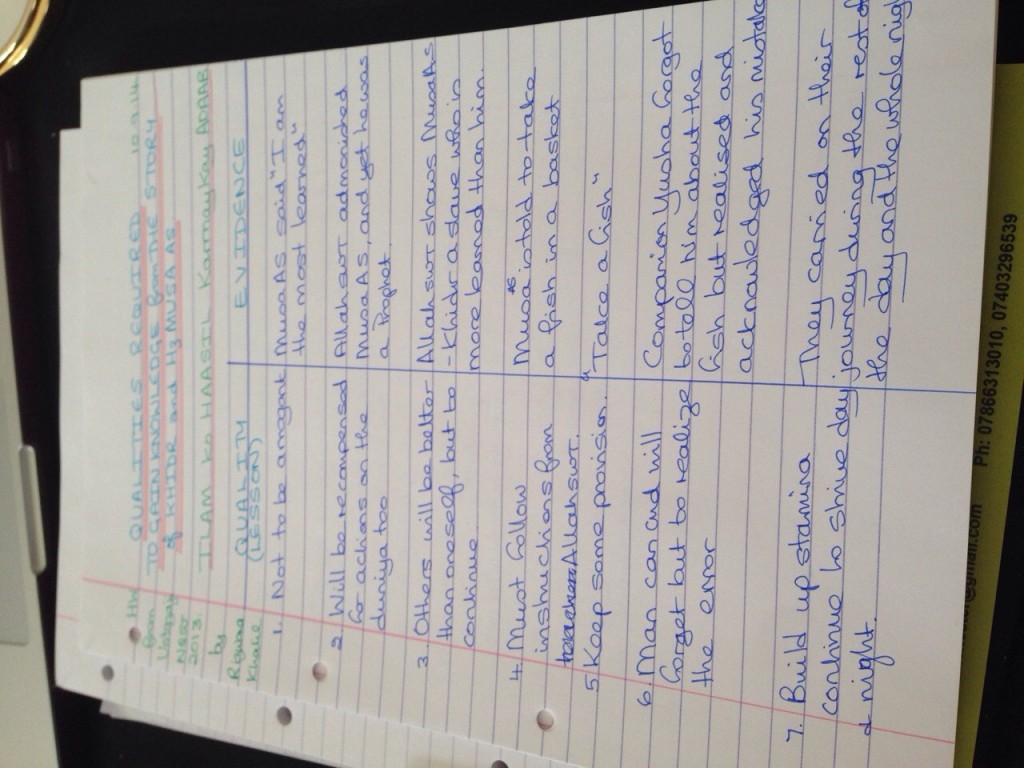 QUALITIES REQUIRED 10.9.14
TO GAIN KNOWLEDGE from THE STORY
of KHIDR and Hz MUSA AS
from
NEST
2013.
by
Khalil
ILAM ko HAASIL Karnaykay ADAAB
QUALITY EVIDENCE
(LESSON)
1. Not to be arrogant Musa AS said "I am
the most learned"
2. Will be recompensed Allah SWT admonished
for actions in the Musa AS, and yet he was
duniya too a Prophet.
3. Others will be better Allah SWT shows Musa AS
than oneself, but to - Khidr a slave who is
continue more learned than him.
4. Must follow Musa AS is told to take
instructions from a fish in a basket
Allah SWT.
5. Keep some provision. "Take a fish"
6. Man can and will Companion Yusha forgot
forget but to realize to tell him about the
the error fish but realised and
acknowledged his mistake
7. Build up stamina They carried on their
continue to strive day journey during the rest of
& night. the day and the whole nigh
@gmail.com Ph: 07866313010, 07403296539